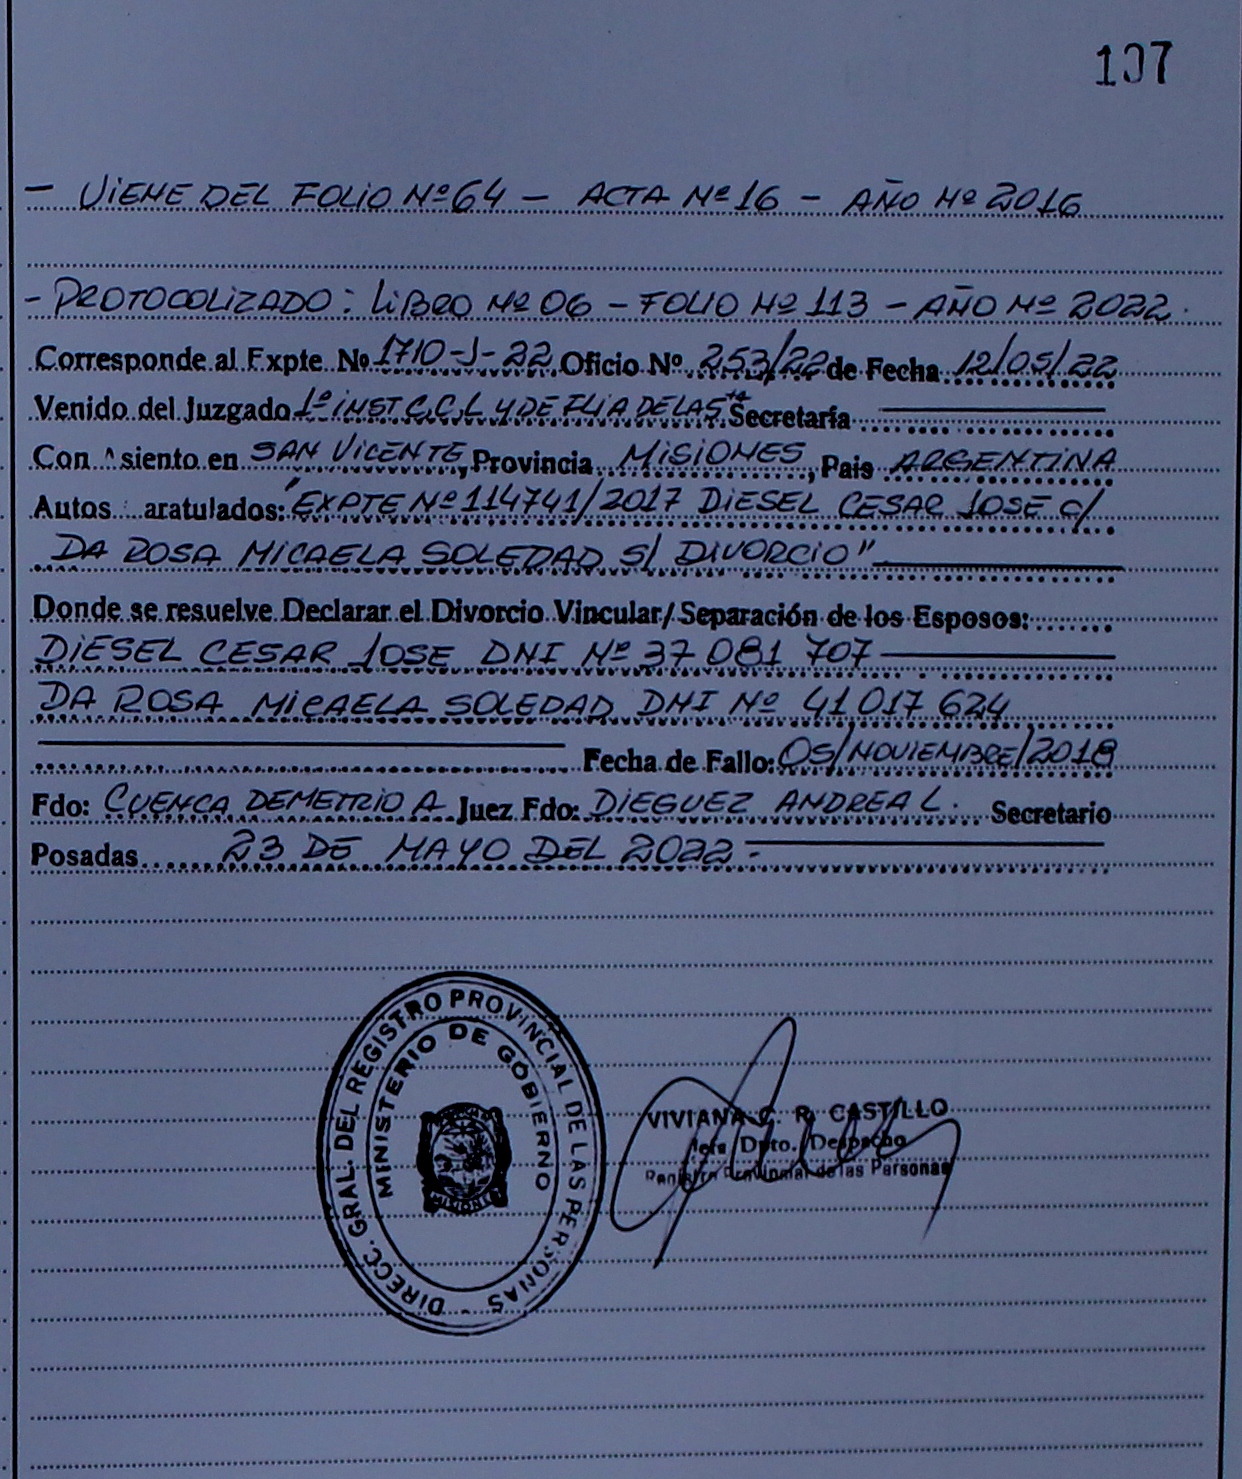 107
- VIENE DEL FOLIO Nº 64 - ACTA Nº 16 - AÑO Nº 2016
- PROTOCOLIZADO: LIBRO Nº 06 - FOLIO Nº 113 - AÑO Nº 2022.
Corresponde al Expte Nº 1710-J-22 Oficio Nº 253/22 de Fecha 12/05/22
Venido del Juzgado 1º INST C,C,L Y DE FLIA DE LAS Secretaría
Con siento en SAN VICENTE, Provincia MISIONES, Pais ARGENTINA
Autos aratulados: "EXPTE Nº 114741/2017 DIESEL CESAR JOSE c/
DA ROSA MICAELA SOLEDAD S/ DIVORCIO"
Donde se resuelve Declarar el Divorcio Vincular/Separación de los Esposos:
DIESEL CESAR JOSE DNI Nº 37 081 707
DA ROSA MICAELA SOLEDAD DNI Nº 41 017 624
Fecha de Fallo: 05/NOVIEMBRE/2018
Fdo: CUENCA DEMETRIO A Juez Fdo: DIEGUEZ ANDREA L. Secretario
Posadas 23 DE MAYO DEL 2022-
DIRECC. GRAL. DEL REGISTRO PROVINCIAL DE LAS PERSONAS -
MINISTERIO DE GOBIERNO
MISIONES
VIVIANA C. R. CASTILLO
Jefe Dpto. Despacho
Registro Provincial de las Personas